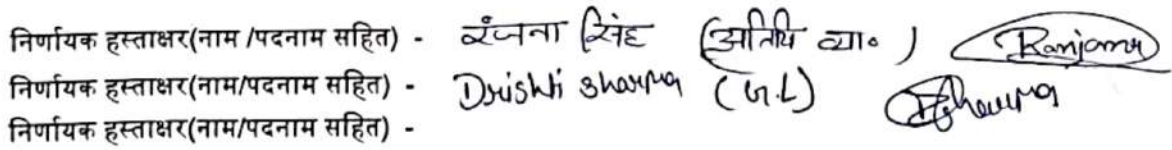 निर्णायक हस्ताक्षर(नाम /पदनाम सहित) - रंजना सिंह (अतिथि व्या०) Ranjana
निर्णायक हस्ताक्षर(नाम/पदनाम सहित) - Drishti Sharma (G.L) Sharma
निर्णायक हस्ताक्षर(नाम/पदनाम सहित) -